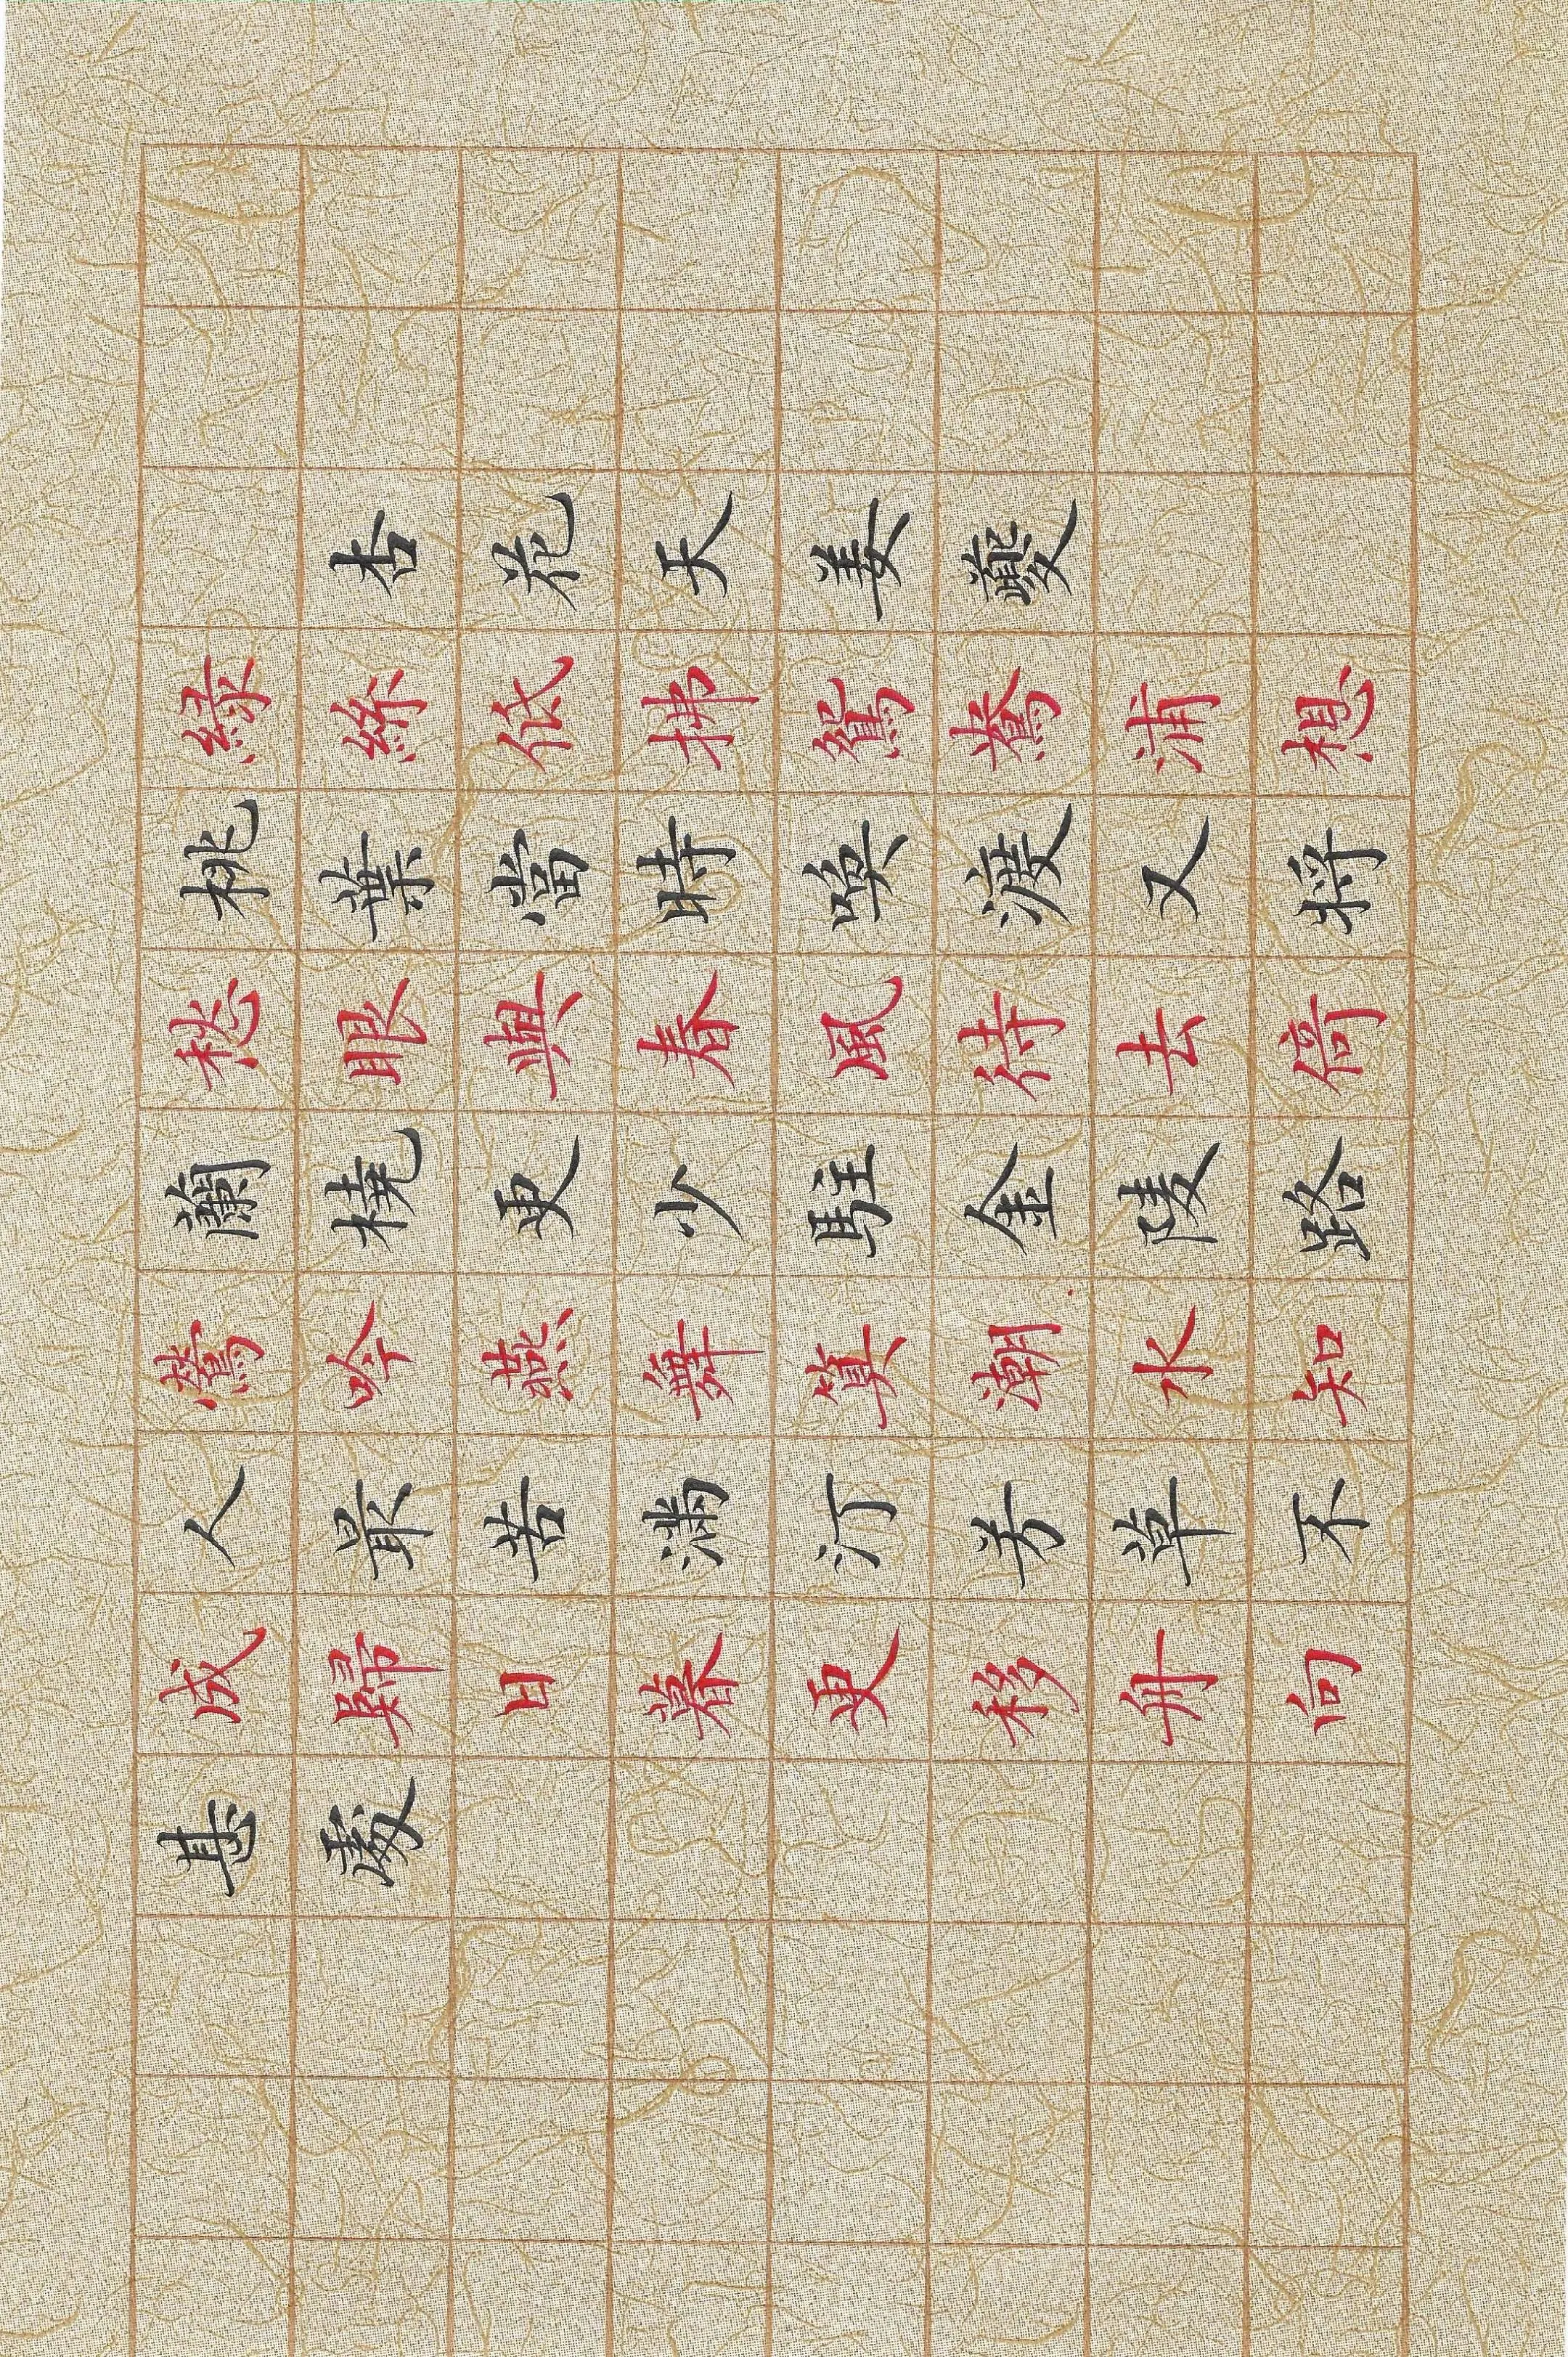 杏花天姜夔
綠絲低拂鴛鴦浦想
桃葉當時喚渡又將
愁眼與春風待去倚
蘭橈更少駐金陵路
鶯吟燕舞算潮水知
人最苦滿汀芳草不
成歸日暮更移舟向
甚處